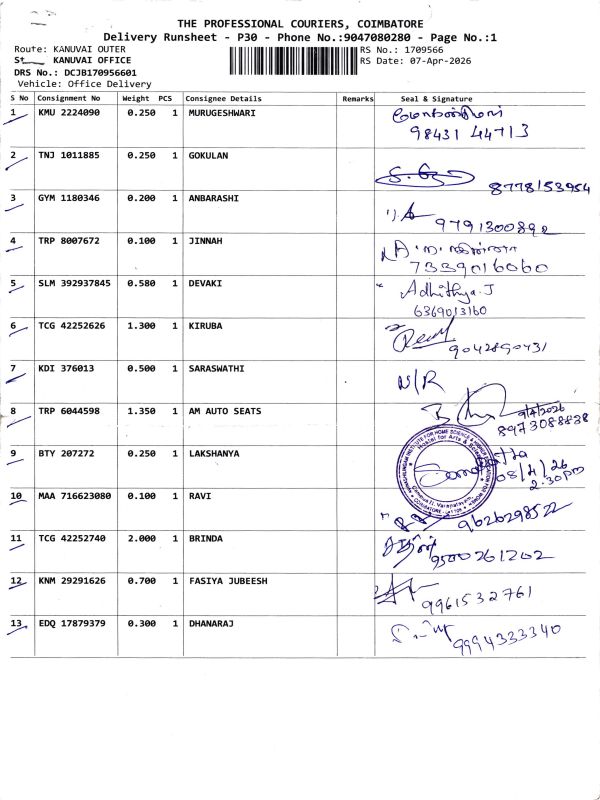 THE PROFESSIONAL COURIERS, COIMBATORE
Delivery Runsheet - P30 - Phone No.:9047080280 - Page No.:1
Route: KANUVAI OUTER
RS No.: 1709566
St KANUVAI OFFICE
RS Date: 07-Apr-2026
DRS No.: DCJB170956601
Vehicle: Office Delivery
S No Consignment No Weight PCS Consignee Details Remarks Seal & Signature
1 KMU 2224090 0.250 1 MURUGESHWARI
98431 44713
2 TNJ 1011885 0.250 1 GOKULAN
8778153954
3 GYM 1180346 0.200 1 ANBARASHI
9791300892
4 TRP 8007672 0.100 1 JINNAH
7339016060
5 SLM 392937845 0.580 1 DEVAKI Adhithya.J
6369013160
6 TCG 42252626 1.300 1 KIRUBA
9042890431
7 KDI 376013 0.500 1 SARASWATHI N/R
8 TRP 6044598 1.350 1 AM AUTO SEATS 9/4/2026
8973088838
9 BTY 207272 0.250 1 LAKSHANYA
08/4/26
2.30pm
10 MAA 716623080 0.100 1 RAVI
9626298522
11 TCG 42252740 2.000 1 BRINDA
9500261202
12 KNM 29291626 0.700 1 FASIYA JUBEESH
9961532761
13 EDQ 17879379 0.300 1 DHANARAJ
9994333340